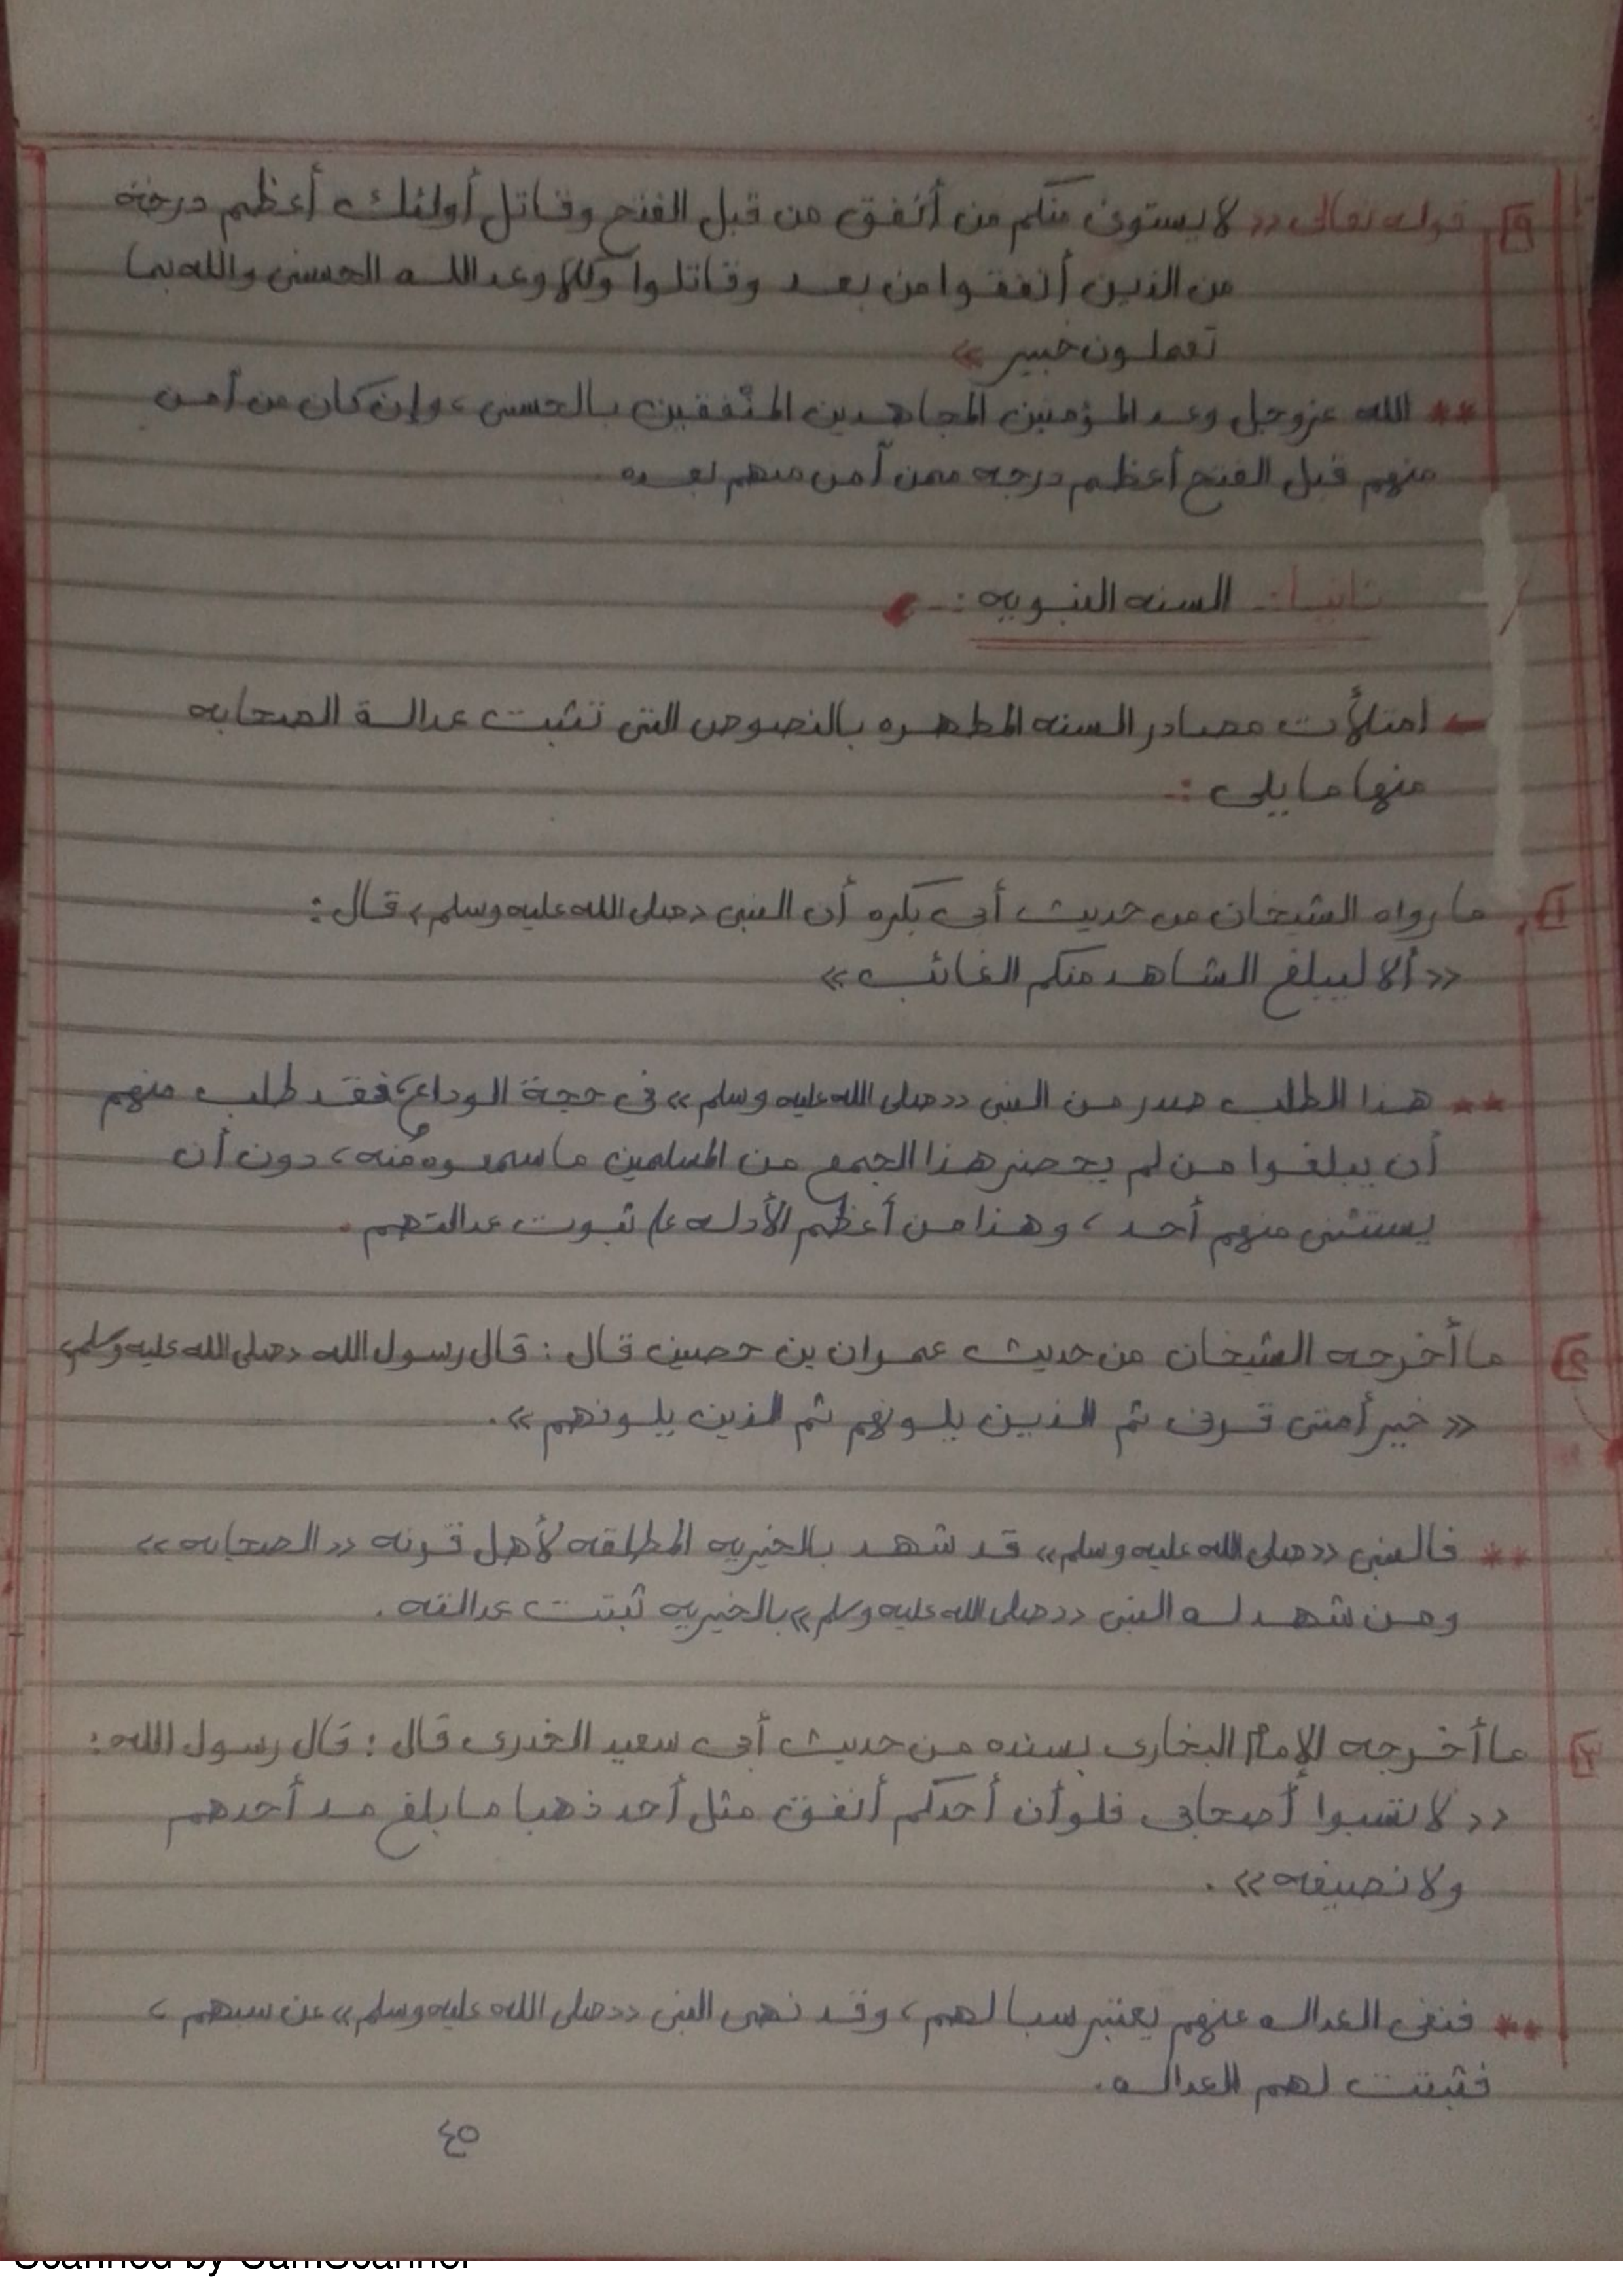 ٥ قوله تعالى «لا يستوى منكم من أنفق من قبل الفتح وقاتل أولئك أعظم درجة
من الذين أنفقوا من بعد وقاتلوا وكلا وعد الله الحسنى والله بما
تعملون خبير»
** الله عزوجل وعد المؤمنين المجاهدين المنفقين بالحسنى، وإن كان من آمن
منهم قبل الفتح أعظم درجه ممن آمن منهم بعده
ثانيا:- السنه النبويه:-
← امتلأت مصادر السنه المطهره بالنصوص التى تثبت عدالة الصحابه
منها ما يلى :-
١ ما رواه الشيخان من حديث أبى بكره أن النبى «صلى الله عليه وسلم» قال:
«ألا ليبلغ الشاهد منكم الغائب»
** هذا الطلب صدر من النبى «صلى الله عليه وسلم» فى حجة الوداع، فقد طلب منهم
أن يبلغوا من لم يحضر هذا الجمع من المسلمين ما سمعوه منه، دون أن
يستثنى منهم أحد، وهذا من أعظم الأدله على ثبوت عدالتهم.
٢ ما أخرجه الشيخان من حديث عمران بن حصين قال: قال رسول الله «صلى الله عليه وسلم»
«خير أمتى قرنى ثم الذين يلونهم ثم الذين يلونهم».
** فالنبى «صلى الله عليه وسلم» قد شهد بالخيريه المطلقه لأهل قرنه «الصحابه»
ومن شهد له النبى «صلى الله عليه وسلم» بالخيريه ثبتت عدالته.
٣ ما أخرجه الإمام البخارى بسنده من حديث أبى سعيد الخدرى قال: قال رسول الله:
«لا تسبوا أصحابى فلو أن أحدكم أنفق مثل أحد ذهبا ما بلغ مد أحدهم
ولا نصيفه».
** فنفى العداله عنهم يعتبر سبا لهم، وقد نهى النبى «صلى الله عليه وسلم» عن سبهم،
فثبتت لهم العداله.
٤٥
Scanned by CamScanner